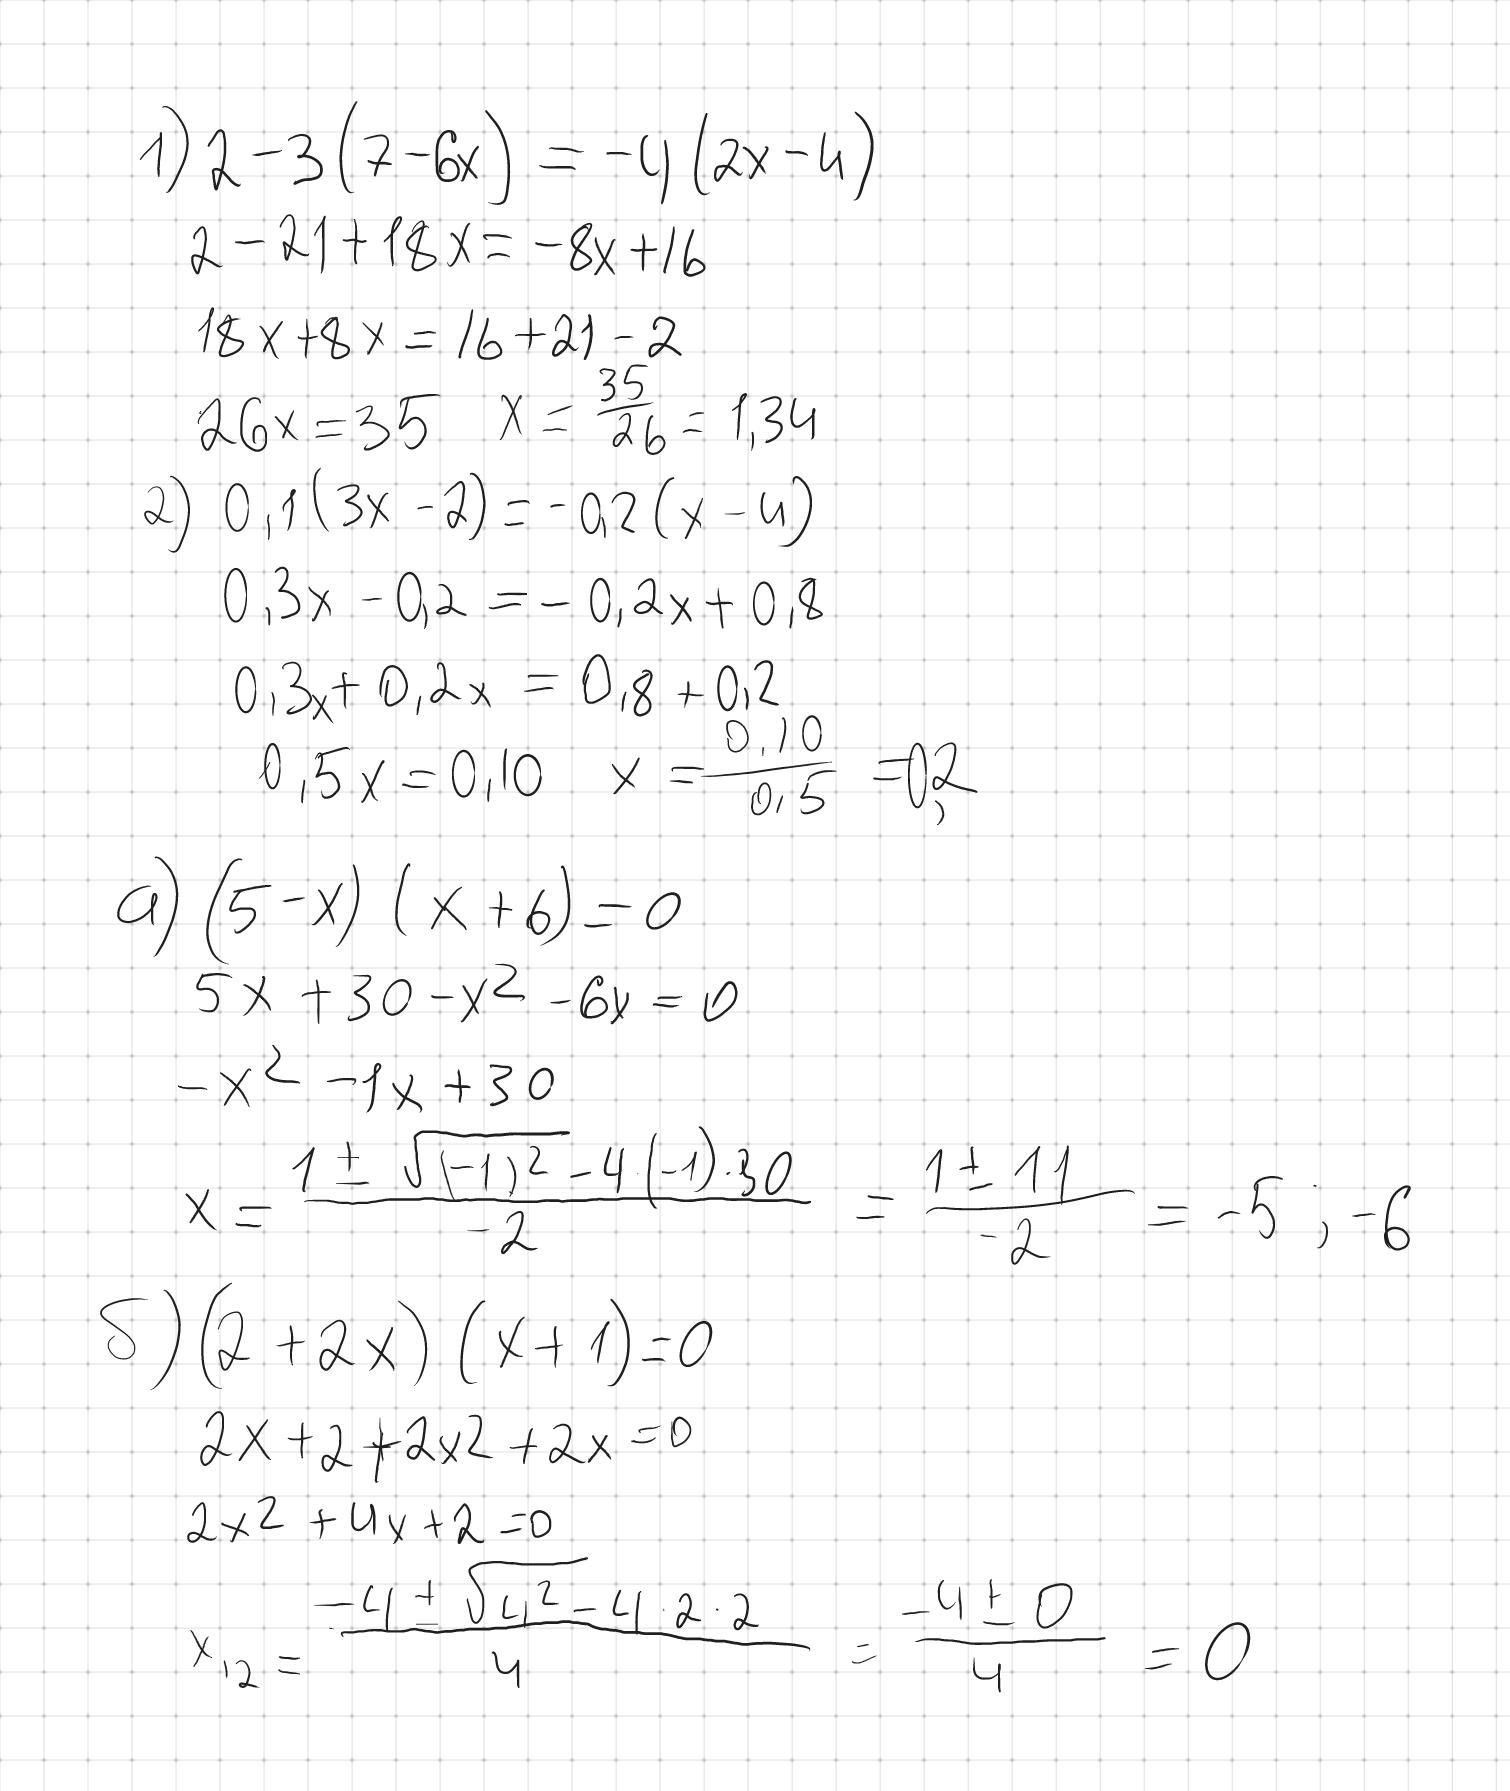 1) 2-3(7-6x) = -4(2x-4)
2-21+18x = -8x+16
18x+8x = 16+21-2
26x=35 x = 35/26 = 1,34
2) 0,1(3x-2) = -0,2(x-4)
0,3x-0,2 = -0,2x+0,8
0,3x+0,2x = 0,8+0,2
0,5x=0,10 x = 0,10/0,5 = 0,2
а) (5-x)(x+6)=0
5x+30-x²-6x=0
-x²-1x+30
x = (1±√(-1)²-4·(-1)·30)/-2 = (1±11)/-2 = -5; -6
б) (2+2x)(x+1)=0
2x+2+2x2+2x=0
2x²+4x+2=0
x₁₂ = (-4±√4²-4·2·2)/4 = (-4±0)/4 = 0